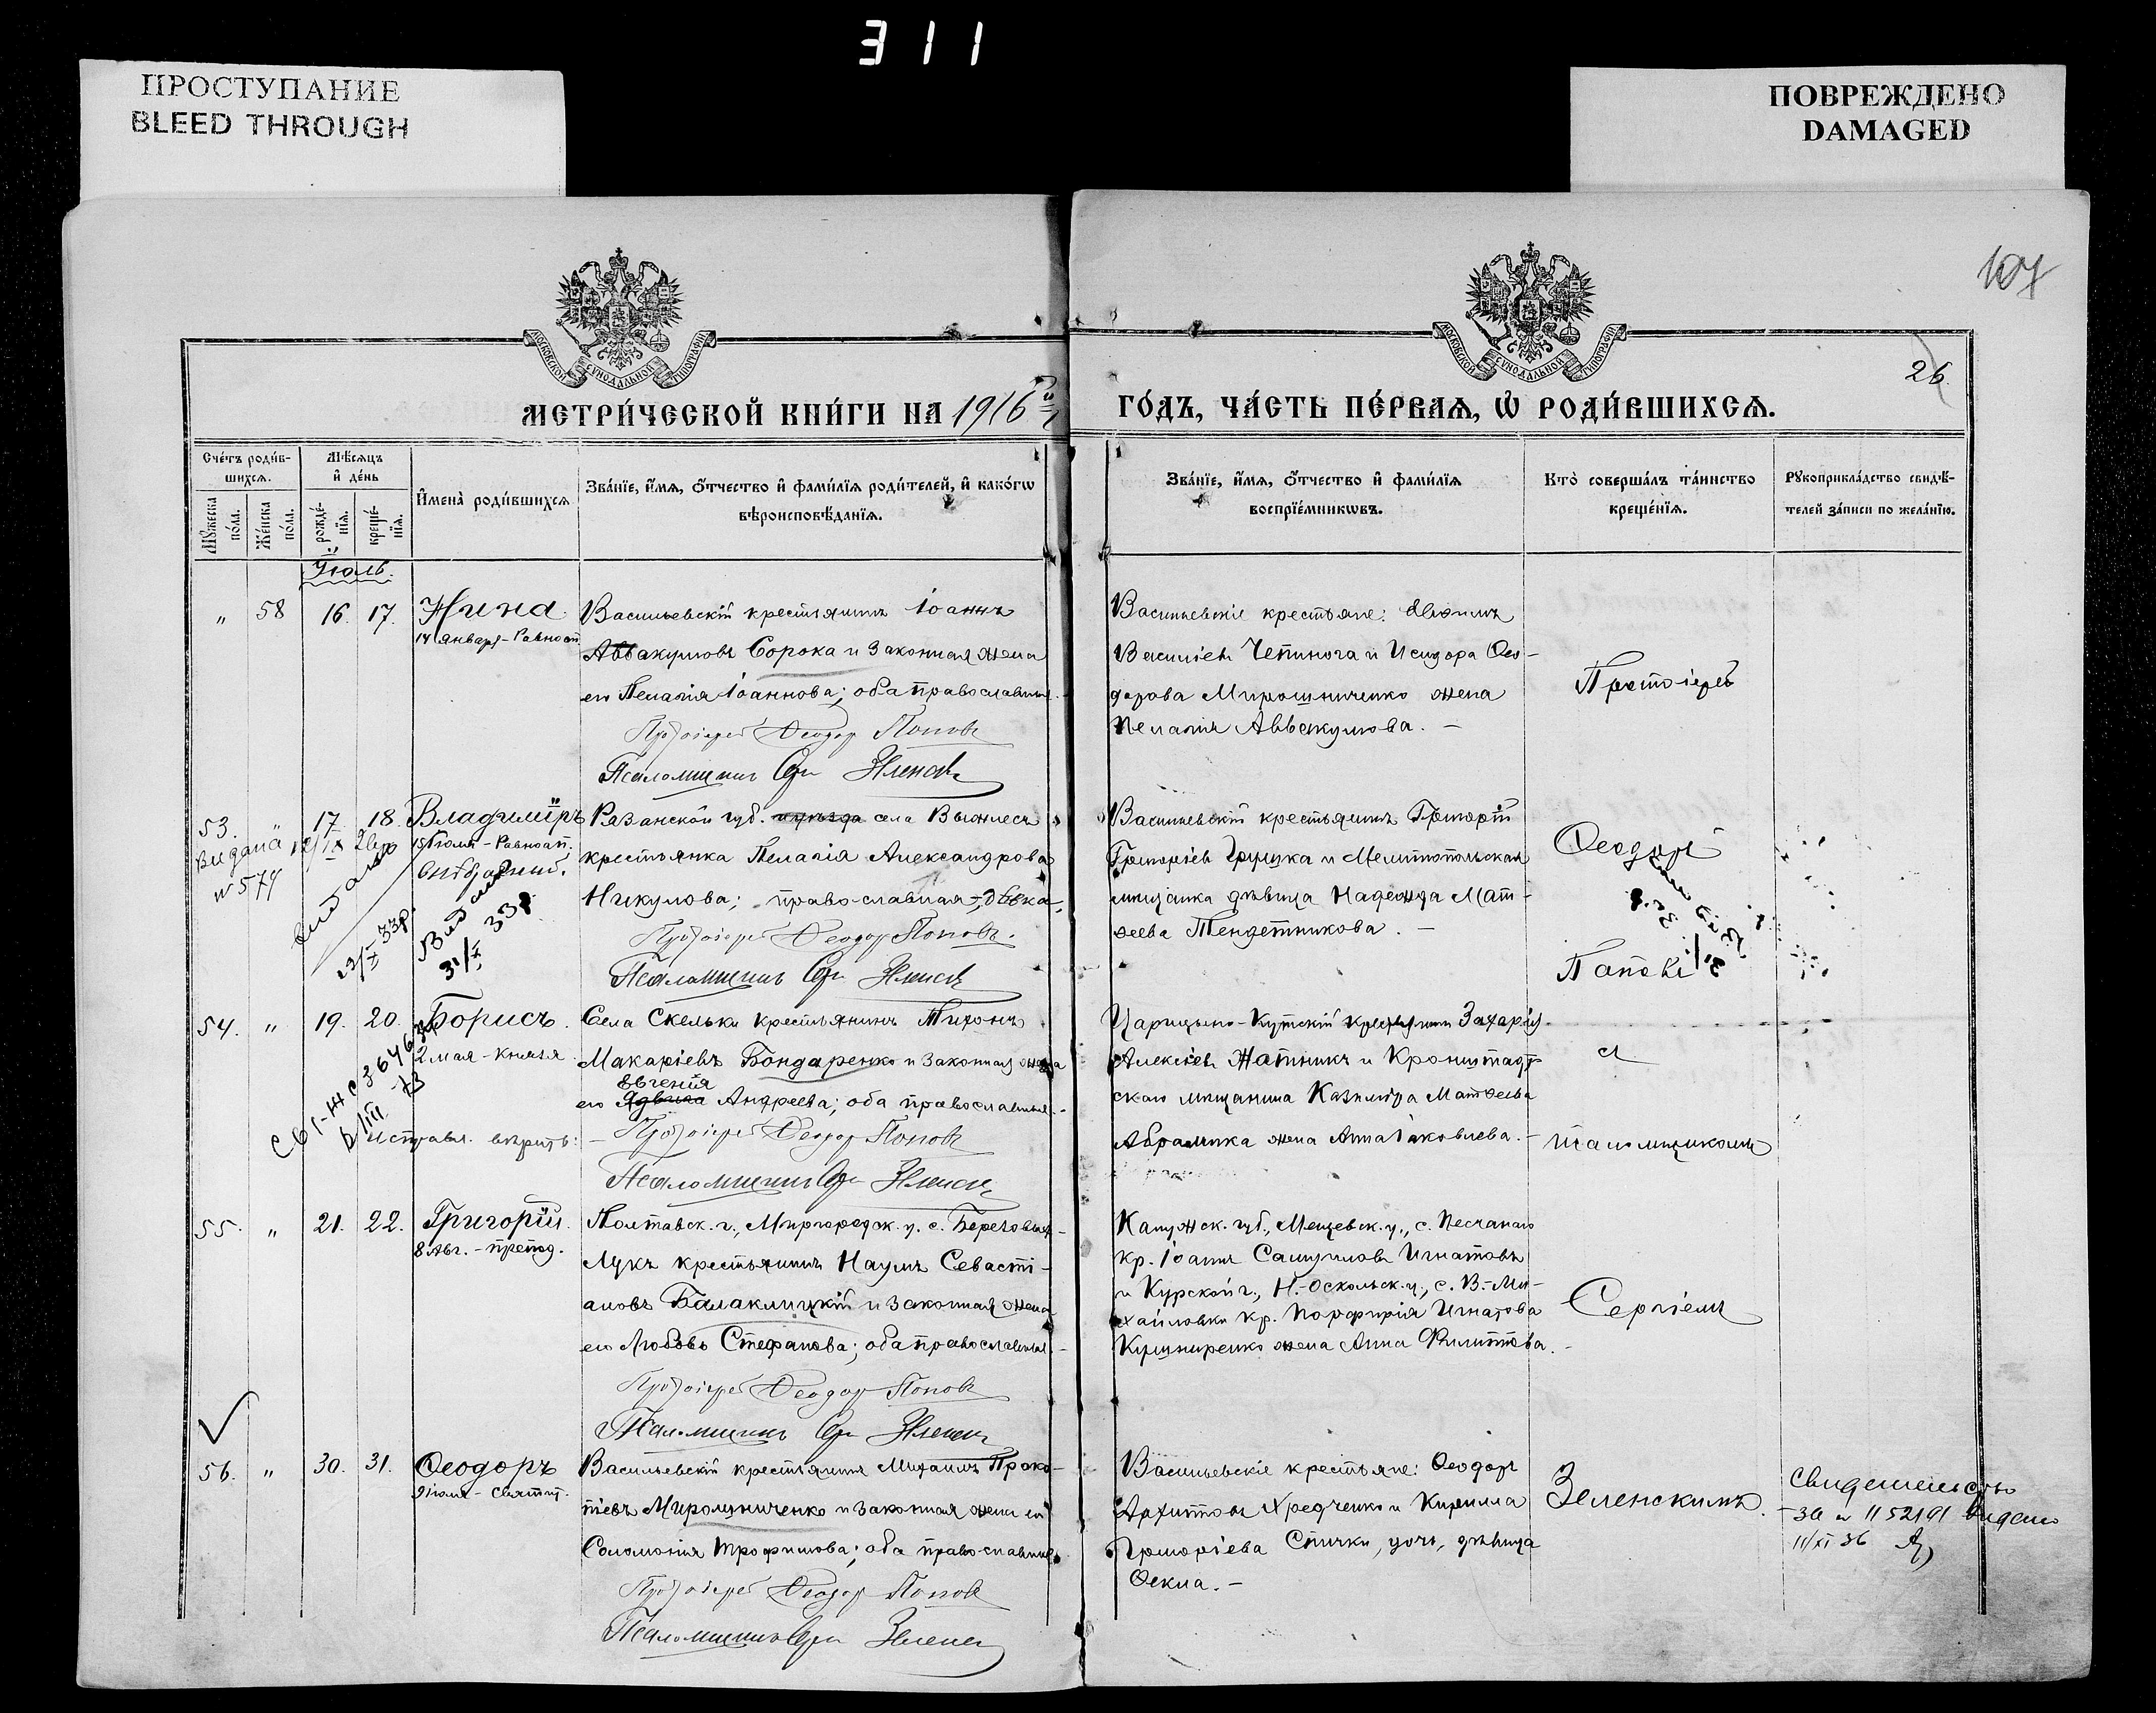 311
ПРОСТУПАНИЕ
BLEED THROUGH
ПОВРЕЖДЕНО
DAMAGED
107
26.
МОСКОВСКОЙ СѴНОДАЛЬНОЙ ТИПОГРАФІИ
МОСКОВСКОЙ СѴНОДАЛЬНОЙ ТИПОГРАФІИ
МЕТРИ́ЧЕСКОЙ КНИ́ГИ НА 1916й
ГО́ДЪ, ЧА́СТЬ ПЕ́РВАѦ, Ѡ РОДИ́ВШИХСѦ.
Сче́тъ роди́в-
шихсѧ.
Мѣ́сѧцъ
и҆ де́нь
Мꙋ́жеска по́ла.
Же́нска по́ла.
рожде́-
нїѧ.
креще́-
нїѧ.
И҆мена̀ роди́вшихсѧ
Зва́нїе, и҆́мѧ, ѻ҆́тчество и҆ фами́лїѧ роди́телей, и҆ како́гѡ
вѣроисповѣ́данїѧ.
Зва́нїе, и҆́мѧ, ѻ҆́тчество и҆ фами́лїѧ
воспрїе́мникѡвъ.
Кто̀ соверша́лъ та́инство
креще́нїѧ.
Рꙋкоприкла́дство свидѣ́-
телей за́писи по жела́нїю.
Іюль.
" 58 16. 17. Нина.
14 января - Равноап.
Васильевскій крестьянинъ Іоаннъ
Аввакумовъ Сорока и законная жена
его Пелагія Іоаннова; оба православные.
Протоіерей Ѳеодоръ Поповъ
Псаломщикъ Сер. Зеленскій
Васильевскіе крестьяне: Евфимъ
Василіевъ Чепинога и Исидора Ѳео-
дорова Мирошниченко жена
Пелагія Аввакумова. -
Протоіерей
53. " 17 18. Владиміръ
15 Іюля - Равноап.
внебрачный.
Видана
№ 574
Рязанской губ. уѣзда села Выжлесъ
крестьянка Пелагія Александрова
Никулова; православная, дѣвка.
Протоіерей Ѳеодоръ Поповъ.
Псаломщикъ Сер. Зеленскій
Васильевскій крестьянинъ Григорій
Григоріевъ Грицка и Мелитопольская
мѣщанка дѣвица Надежда Мат-
ѳеева Тендетникова. -
Ѳеодоръ
Поповъ
54. " 19. 20. Борисъ.
2 мая - Князя.
Села Скельки крестьянинъ Тихонъ
Макаріевъ Бондаренко и законная жена
Евгенія
его Ядвига Андреева; оба православные.
исправл. вѣрить: - Протоіерей Ѳеодоръ Поповъ
Псаломщикъ Сер. Зеленскій
Царицыно-Кутскій крестьянинъ Захарій
Алексіевъ Жатникъ и Кронштадт-
скаго мѣщанина Казиміра Матѳеева
Абрамчика жена Анна Іаковлева. -
съ
псаломщикомъ
55. " 21. 22. Григорій.
8 Авг. - препод.
Полтавск. г., Миргородск. у. с. Березовая-
Лука крестьянинъ Наумъ Севасті-
ановъ Балаклицкій и законная жена
его Любовь Стефанова; оба православные.
Протоіерей Ѳеодоръ Поповъ
Псаломщикъ Сер. Зеленскій
Калужск. губ., Мещевск. у., с. Песчанаго
кр. Іоаннъ Самуиловъ Игнатовъ
и Курской г., Н.-Оскольск. у., с. В.-Ми-
хайловки кр. Порфирія Игнатова
Кушниренко жена Анна Филиппова. -
Сергіемъ
56. " 30. 31. Ѳеодоръ
Васильевскій крестьянинъ Михаилъ Проко-
піевъ Мирошниченко и законная жена его
Соломонія Трофимова; оба православные.
Протоіерей Ѳеодоръ Поповъ
Псаломщикъ Сер. Зеленскій
Васильевскіе крестьяне: Ѳеодоръ
Архиповъ Хредченко и Кирилла
Григоріева Спички, дочь, дѣвица
Ѳекла. -
Зеленскимъ.
Свидетельство
за № 1152191 видано
11/XI 36